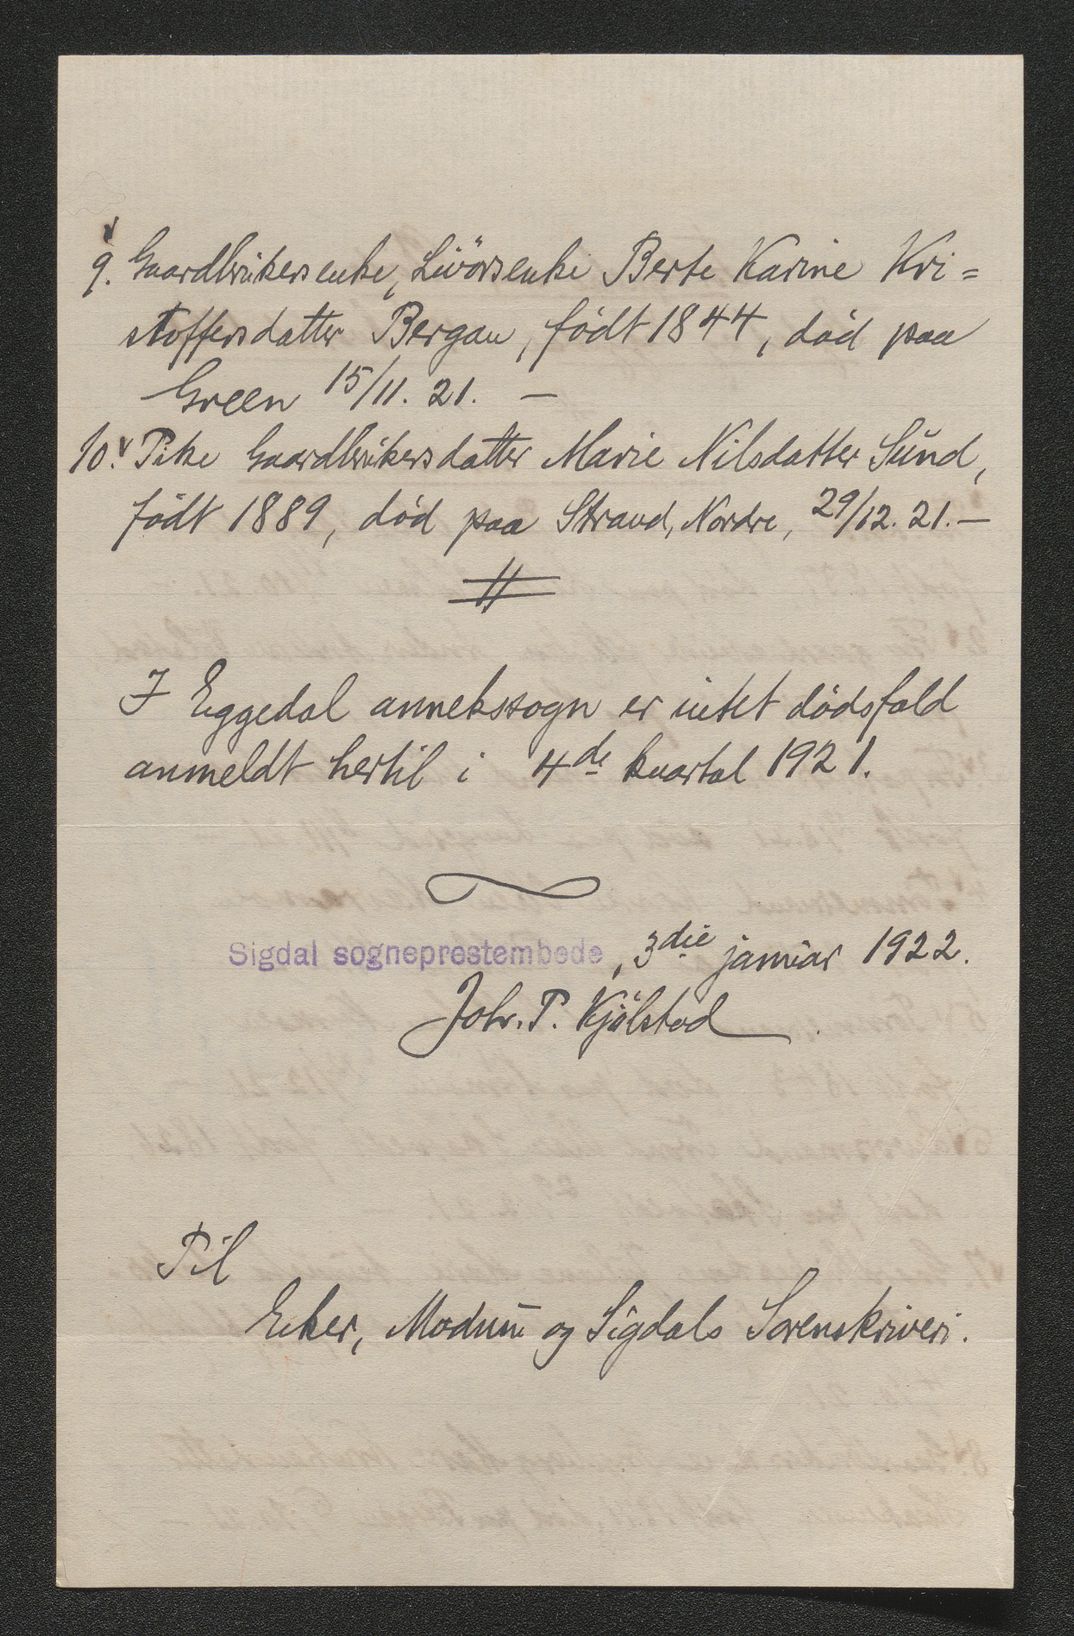 9. Gaardbrukersenke, Livörsenke Berte Karine Kri=
stoffersdatter Bergan, født 1844, død paa
Green 15/11. 21. —
10. Pike Gaardbrukersdatter Marie Nilsdatter Sund,
født 1889, død paa Strand, Nordre, 29/12. 21. —
I Eggedal annekssogn er intet dödsfald
anmeldt hertil i 4de kvartal 1921.
Sigdal sogneprestembede, 3die januar 1922.
Joh. P. Kjölstad
Til
Eker, Modum og Sigdals Sorenskriveri.